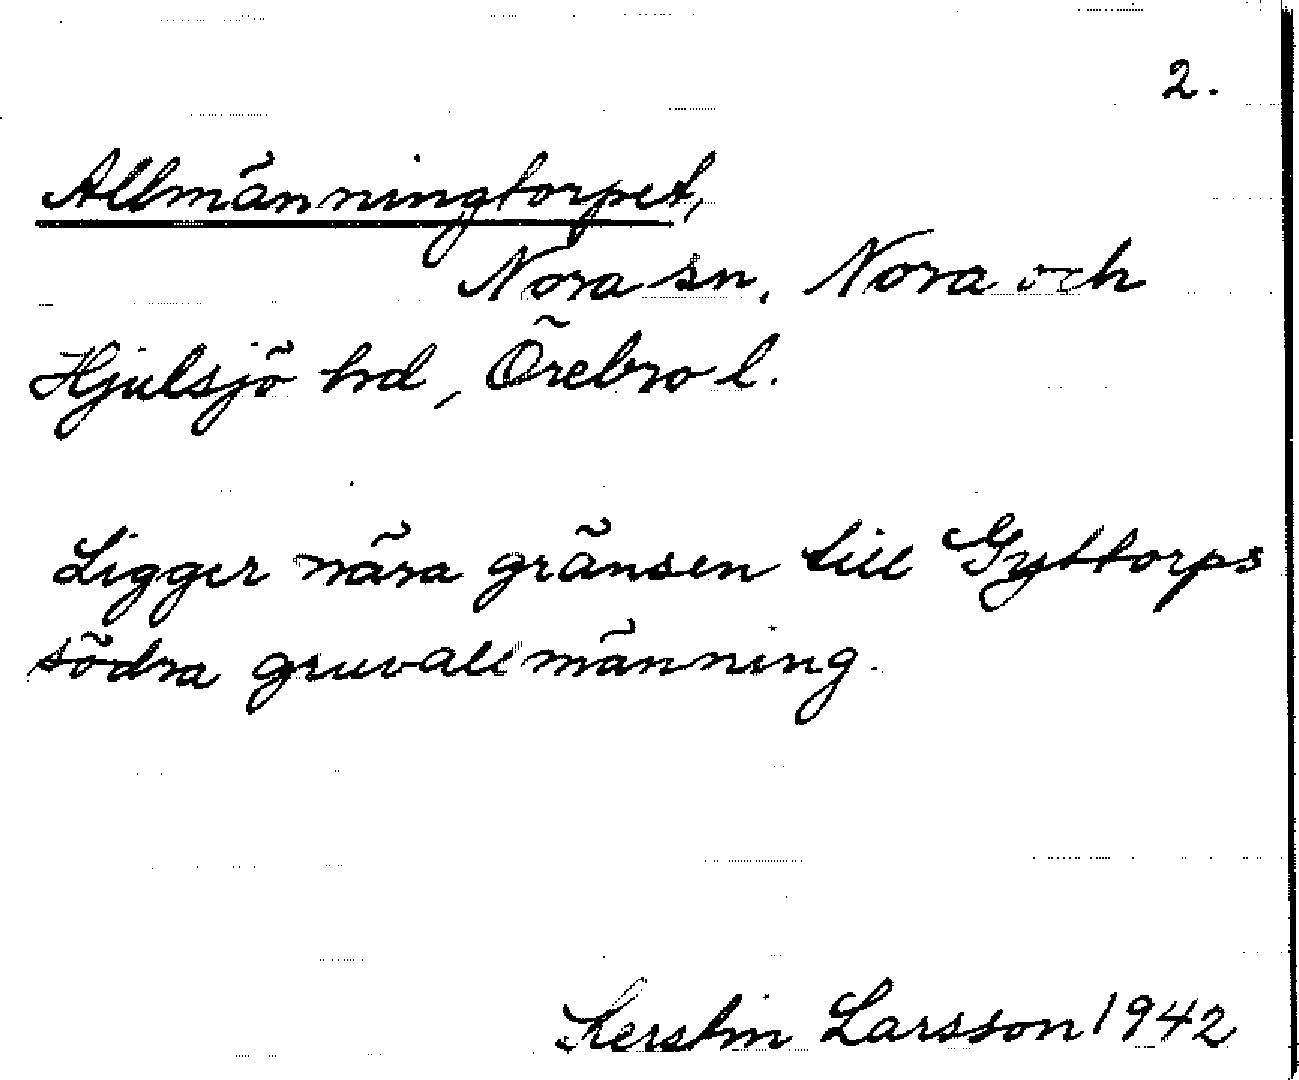 2.
Allmänningtorpet,
Nora sn, Nora och
Hjulsjö hd, Örebro l.
Ligger nära gränsen till Gyttorps
södra gruvallmänning.
Kerstin Larsson 1942